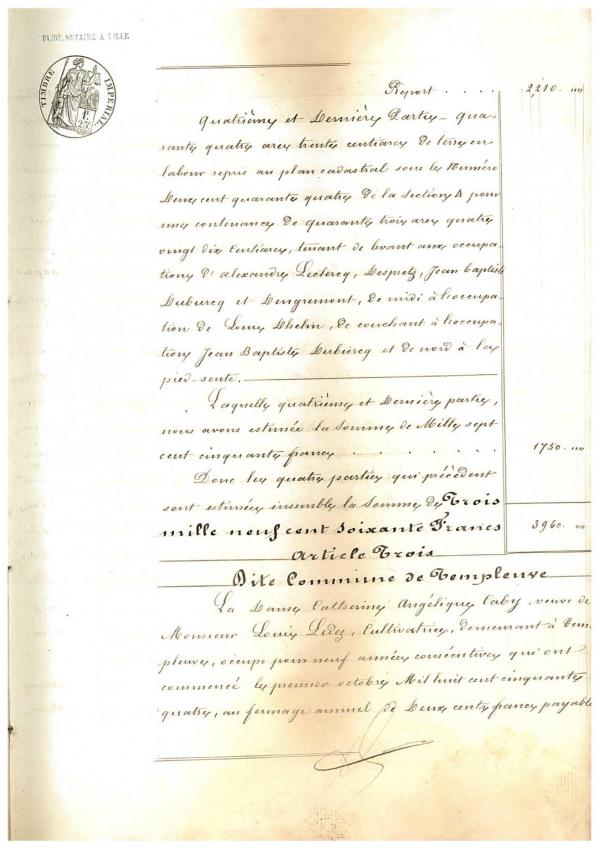 PAJOT, NOTAIRE A LILLE
TIMBRE IMPERIAL
1 F.
25 C.
Report . . . . 2210. "
Quatrième et Dernière Partie - qua-
rante quatre ares trente centiares de terre en
labour repris au plan cadastral sous le Numéro
Deux cent quarante quatre de la Section A pour
une contenance de quarante trois ares quatre
vingt dix Centiares, tenant de levant aux occupa-
tions d'alexandre Leclercq, Despretz, Jean Baptiste
Dubureq et Dengremont, de midi à l'occupa-
tion de Louis Dhelin, de couchant à l'occupa-
tion Jean Baptiste Dubureq et de nord à la
pied-sente.
Laquelle quatrième et Dernière partie,
nous avons estimée la Somme de Mille sept
cent cinquante francs . . . . . . 1750. "
Donc les quatre parties qui précèdent
sont estimées ensemble la Somme de Trois
mille neuf cent soixante Francs 3960. "
Article Trois
Dite Commune de Templeuve
La Dame Catherine Angélique Caby, veuve de
Monsieur Louis Ledez, Cultivatrice, demeurant à Tem-
pleuve, occupe pour neuf années consécutives qui ont
commencé le premier octobre Mil huit cent cinquante
quatre, au fermage annuel de Deux cents francs payable